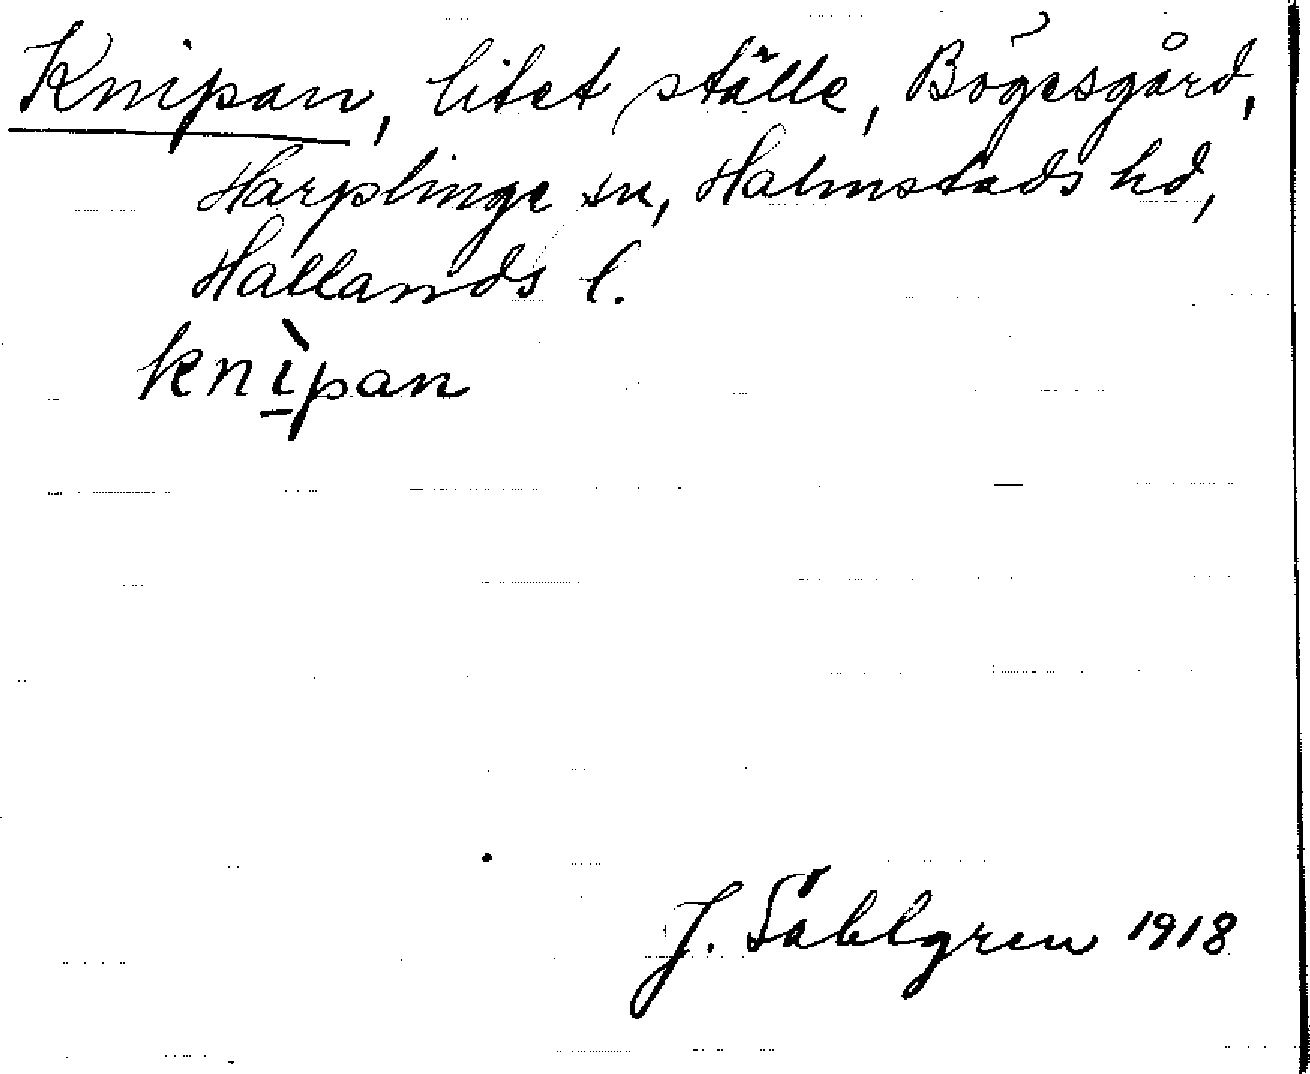 Knipan, litet ställe, Bögesgård,
Harplinge sn, Halmstads hd,
Hallands l.
knìpan
J. Sahlgren 1918